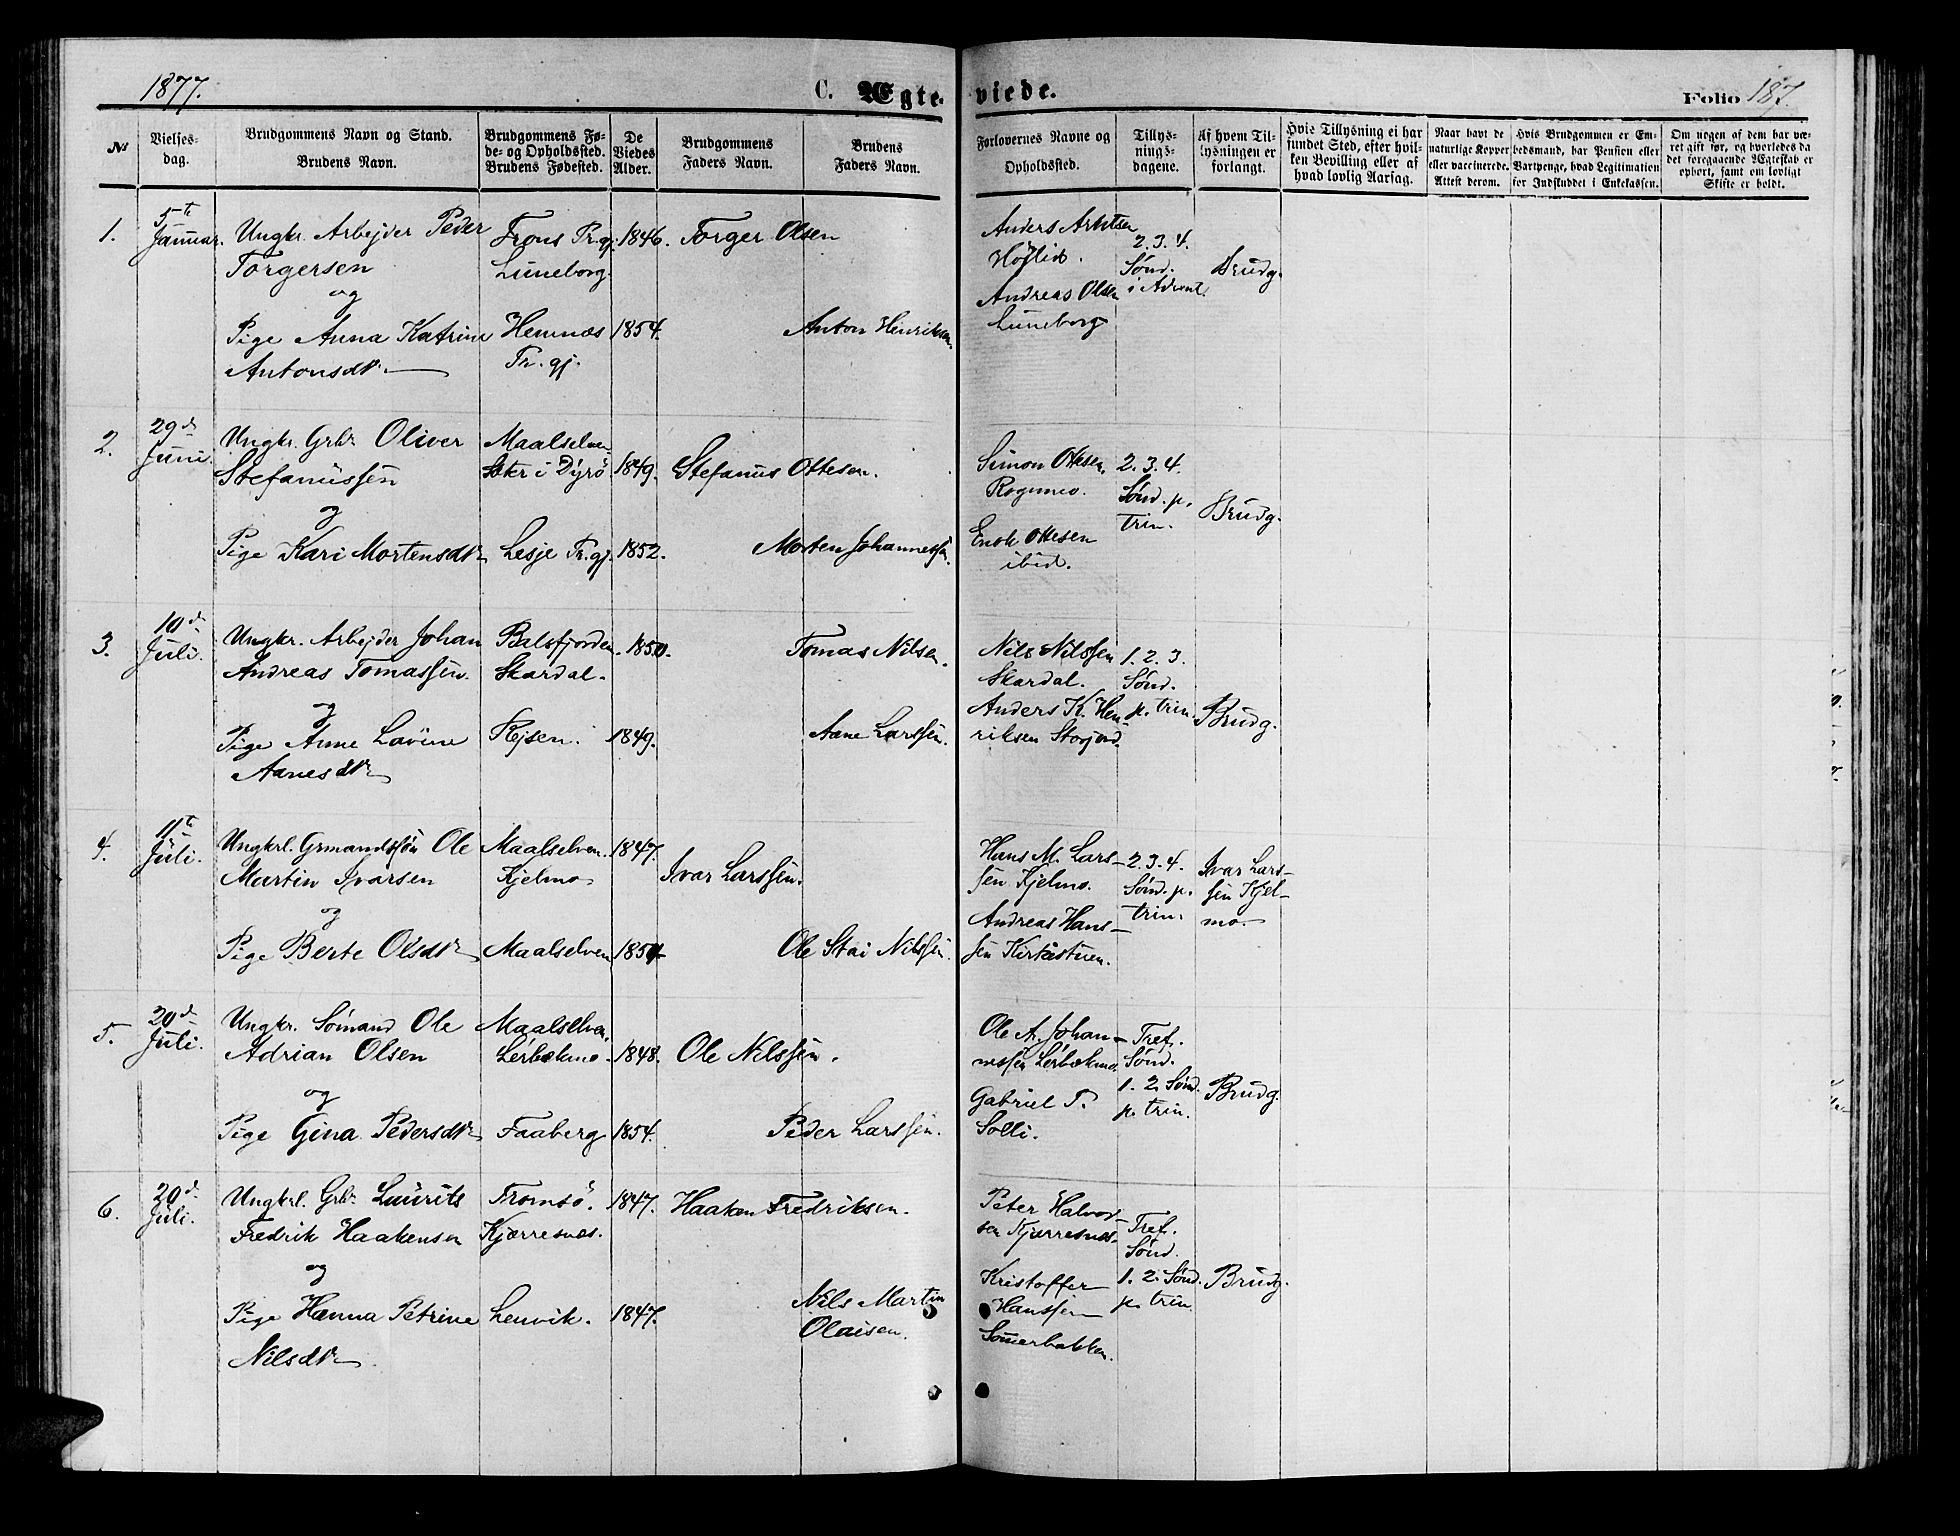 1877.
C. Ægte-viede.
Folio 187.
No
Vielses-dag.
Brudgommens Navn og Stand.
Brudens Navn.
Brudgommens Fø-
de- og Opholdssted.
Brudens Fødested.
De
Viedes
Alder.
Brudgommens
Faders Navn.
Brudens
Faders Navn.
Forlovernes Navne og
Opholdssted.
Tillys-
nings-
dagene.
Af hvem Til-
lysningen er
forlangt.
Hvis Tillysning ei har
fundet Sted, efter hvil-
ken Bevilling eller af
hvad lovlig Aarsag.
Naar havt de
naturlige Kopper
eller vaccinerede.
Attest derom.
Hvis Brudgommen er Em-
bedsmand, har Pension eller
Vartpenge, hvad Legitimation
for Indskuddet i Enkekassen.
Om nogen af dem har væ-
ret gift før, og hvorledes da
det foregaaende Ægteskab er
ophørt, samt om lovligt
Skifte er holdt.
1.
5te
Januar.
Ungkr. Arbejder Peder
Torgersen
og
Pige Anna Katrine
Antonsdtr
Frons Pr.gj.
Luneborg.
Hemnæs
Pr. gj.
1846.
1854.
Torger Olsen
Anton Henriksen.
Anders Arntsen
Højlid.
Andreas Olsen
Luneborg
2. 3. 4.
Sønd.
i Advent.
Brudg.
2.
29de
Juni
Ungkr. Grbr. Oliver
Stefanussen
og
Pige Kari Mortensdtr
Maalselven
Sæter i Dyrø
Lesje Pr.gj.
1849.
1852.
Stefanus Ottesen.
Morten Johannessen.
Simon Ottesen
Rognmo.
Enok Ottesen
ibid.
2. 3. 4.
Sønd. p.
trin.
Brudg.
3.
10de
Juli.
Ungkr. Arbejder Johan
Andreas Tomassen.
og
Pige Anne Lavine
Aanesdtr
Balsfjorden
Skardal.
Rejsen.
1850.
1849.
Tomas Nilsen.
Aane Larssen.
Nils Nilssen
Skardal.
Anders K. Hen-
riksen Storjord.
1. 2. 3.
Sønd.
p. trin.
Brudg.
4.
11te
Juli.
Ungkrl. Grmandssøn Ole
Martin Ivarsen
og
Pige Berte Olsdtr
Maalselven.
Kjelmo
Maalselven
1847.
Ivar Larssen.
Ole Stai Nilssen.
Hans M. Lars-
sen Kjelmo.
Andreas Hans-
sen Kirkestuen.
2. 3. 4.
Sønd. p.
trin.
Ivar Lars-
sen Kjel-
mo.
5.
20de
Juli.
Ungkr. Sømand Ole
Adrian Olsen
og
Pige Gina Pedersdtr
Maalselven.
Lerbækmo.
Faaberg
1848.
1854.
Ole Nilssen.
Peder Larssen.
Ole A. Johan-
nessen Lerbækmo.
Gabriel P.
Solli.
Tref.
Sønd.
1. 2. Sønd.
p. trin.
Brudg.
6.
20de
Juli.
Ungkrl. Grbr. Laurits
Fredrik Haakensen
og
Pige Hanna Petrine
Nilsdtr
Tromsø.
Kjærresnæs.
Lenvik.
1847.
1847.
Haaken Fredriksen.
Nils Martin
Olaisen.
Peter Halvor-
sen Kjærresnæs.
Kristoffer
Hanssen
Sommerbakken.
Tref.
Sønd.
1. 2. Sønd.
p. trin.
Brudg.